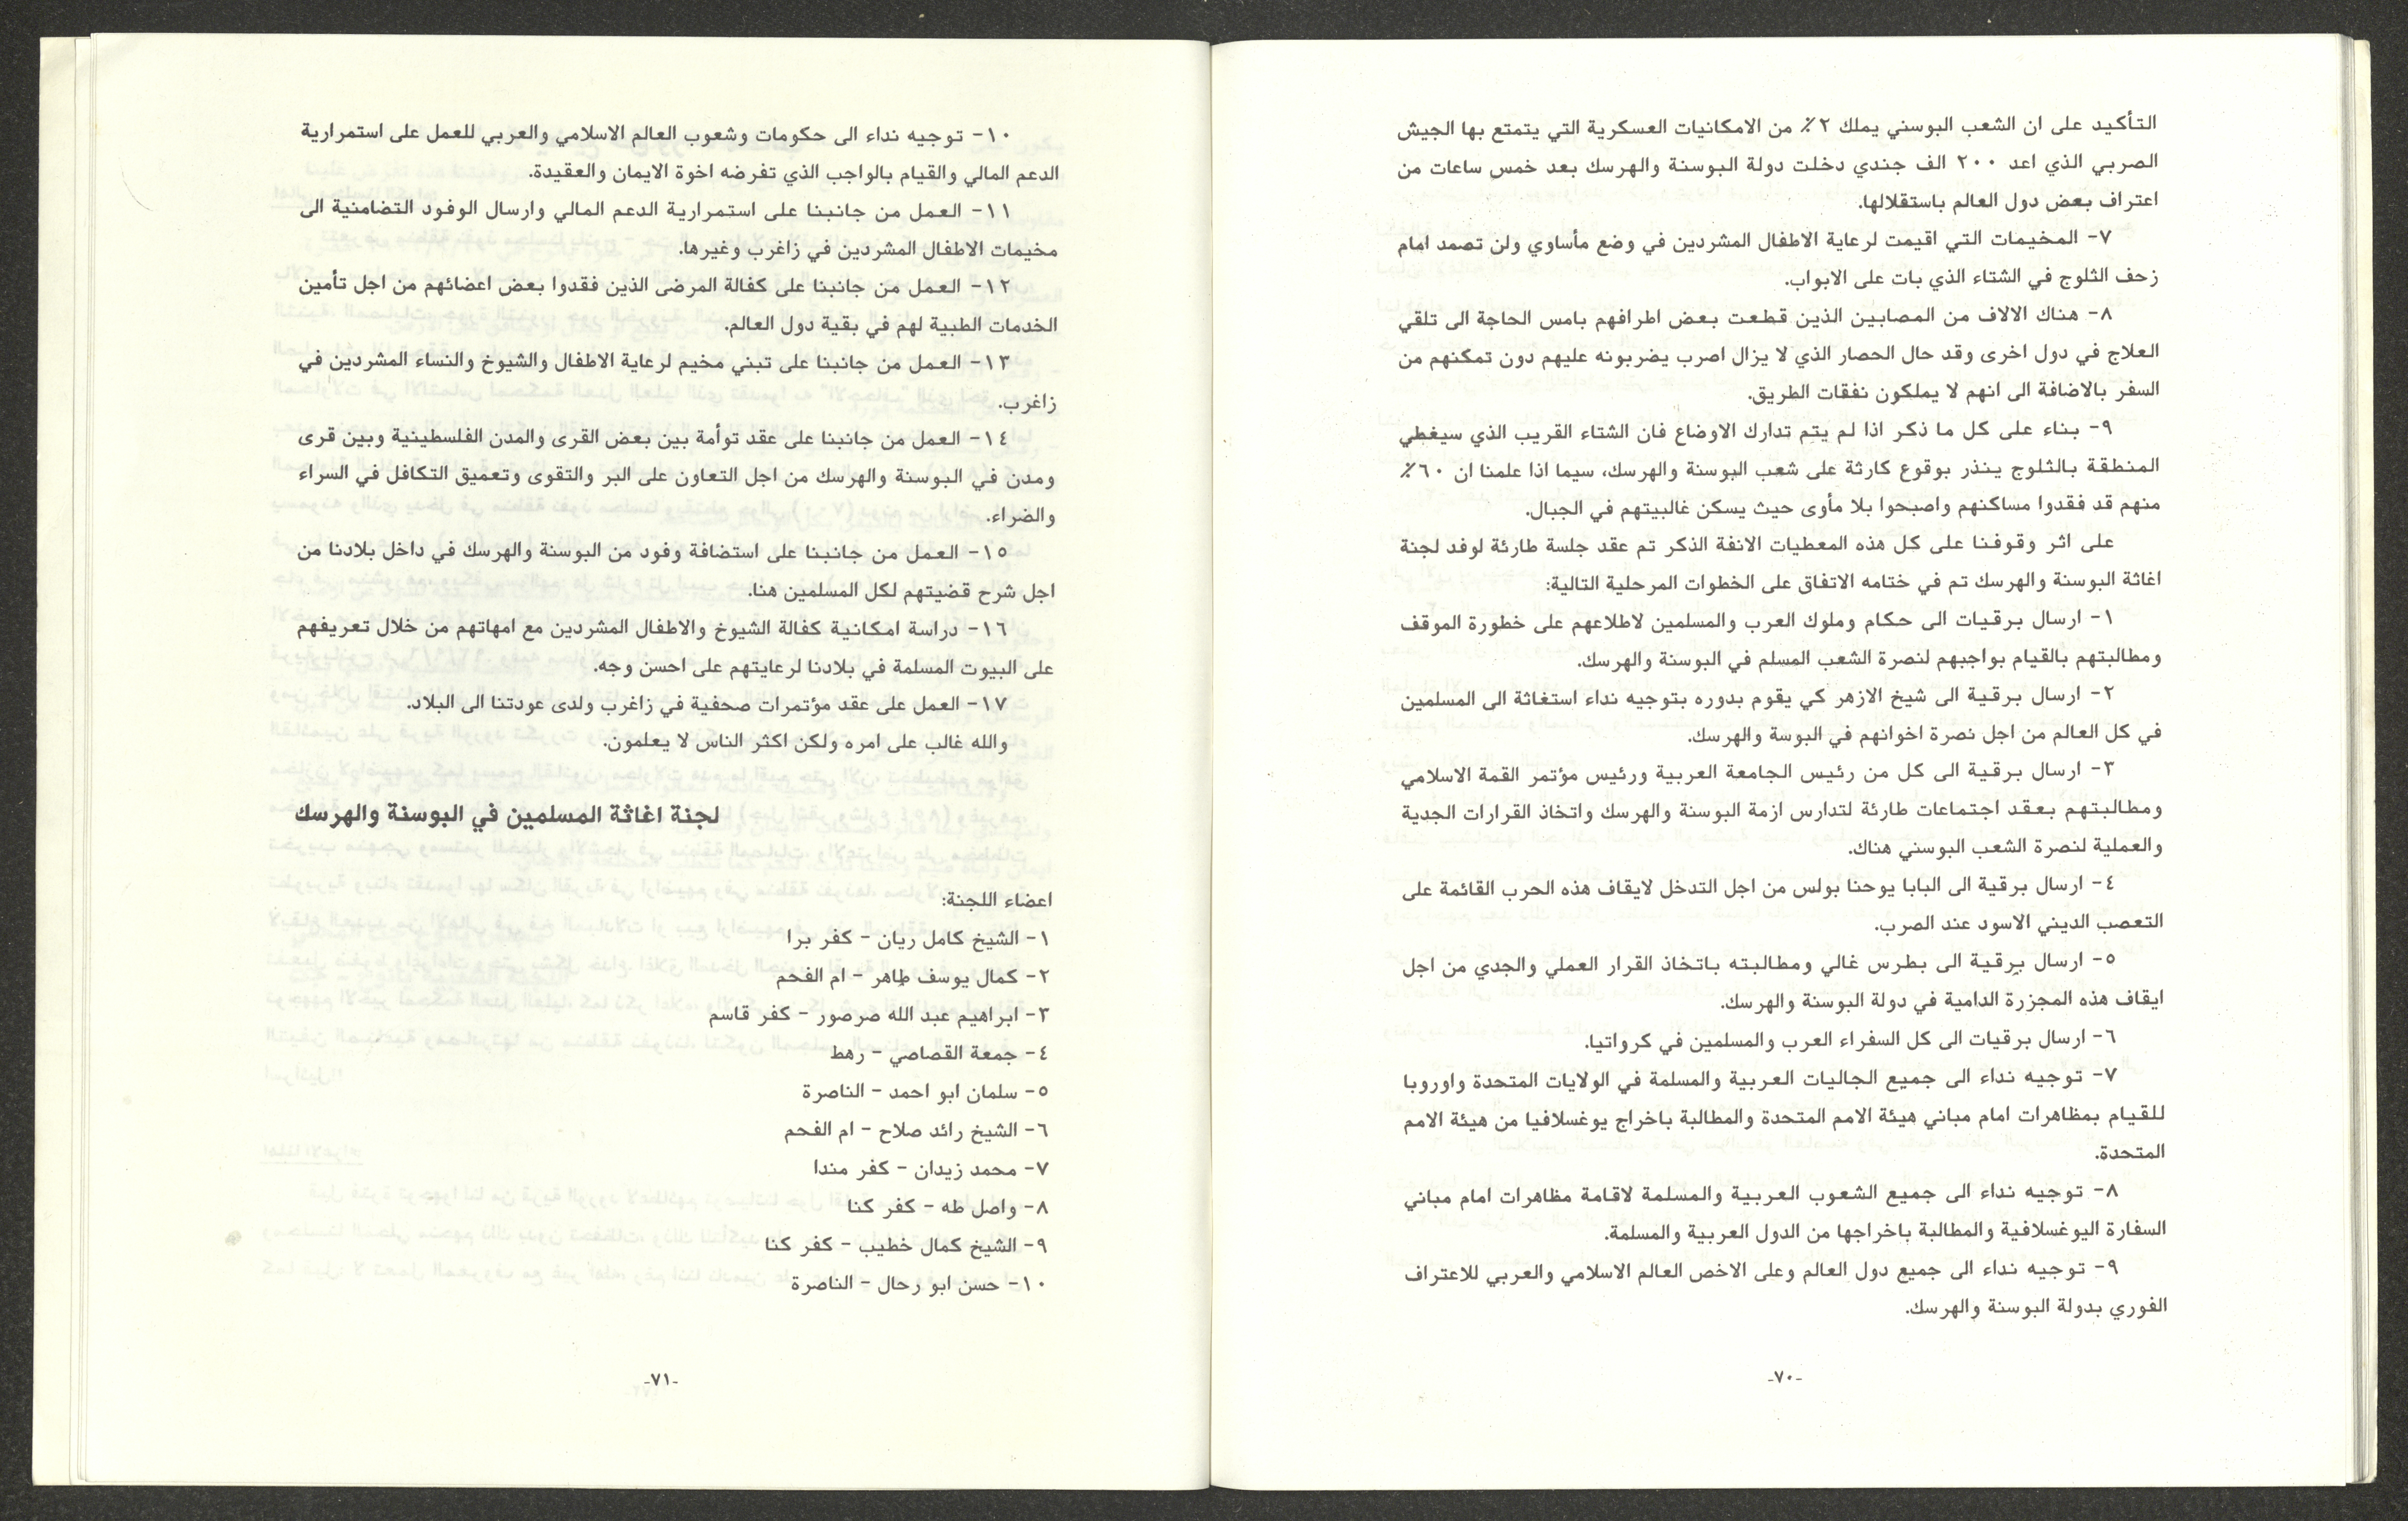 التأكيد على ان الشعب البوسني يملك ٢٪ من الامكانيات العسكرية التي يتمتع بها الجيش
الصربي الذي اعد ٢٠٠ الف جندي دخلت دولة البوسنة والهرسك بعد خمس ساعات من
اعتراف بعض دول العالم باستقلالها.
٧- المخيمات التي اقيمت لرعاية الاطفال المشردين في وضع مأساوي ولن تصمد امام
زحف الثلوج في الشتاء الذي بات على الابواب.
٨- هناك الالاف من المصابين الذين قطعت بعض اطرافهم بامس الحاجة الى تلقي
العلاج في دول اخرى وقد حال الحصار الذي لا يزال اصرب يضربونه عليهم دون تمكنهم من
السفر بالاضافة الى انهم لا يملكون نفقات الطريق.
٩- بناء على كل ما ذكر اذا لم يتم تدارك الاوضاع فان الشتاء القريب الذي سيغطي
المنطقة بالثلوج ينذر بوقوع كارثة على شعب البوسنة والهرسك، سيما اذا علمنا ان ٦٠٪
منهم قد فقدوا مساكنهم واصبحوا بلا مأوى حيث يسكن غالبيتهم في الجبال.
على اثر وقوفنا على كل هذه المعطيات الانفة الذكر تم عقد جلسة طارئة لوفد لجنة
اغاثة البوسنة والهرسك تم في ختامه الاتفاق على الخطوات المرحلية التالية:
١- ارسال برقيات الى حكام وملوك العرب والمسلمين لاطلاعهم على خطورة الموقف
ومطالبتهم بالقيام بواجبهم لنصرة الشعب المسلم في البوسنة والهرسك.
٢- ارسال برقية الى شيخ الازهر كي يقوم بدوره بتوجيه نداء استغاثة الى المسلمين
في كل العالم من اجل نصرة اخوانهم في البوسة والهرسك.
٣- ارسال برقية الى كل من رئيس الجامعة العربية ورئيس مؤتمر القمة الاسلامي
ومطالبتهم بعقد اجتماعات طارئة لتدارس ازمة البوسنة والهرسك واتخاذ القرارات الجدية
والعملية لنصرة الشعب البوسني هناك.
٤- ارسال برقية الى البابا يوحنا بولس من اجل التدخل لايقاف هذه الحرب القائمة على
التعصب الديني الاسود عند الصرب.
٥- ارسال برقية الى بطرس غالي ومطالبته باتخاذ القرار العملي والجدي من اجل
ايقاف هذه المجزرة الدامية في دولة البوسنة والهرسك.
٦- ارسال برقيات الى كل السفراء العرب والمسلمين في كرواتيا.
٧- توجيه نداء الى جميع الجاليات العربية والمسلمة في الولايات المتحدة واوروبا
للقيام بمظاهرات امام مباني هيئة الامم المتحدة والمطالبة باخراج يوغسلافيا من هيئة الامم
المتحدة.
٨- توجيه نداء الى جميع الشعوب العربية والمسلمة لاقامة مظاهرات امام مباني
السفارة اليوغسلافية والمطالبة باخراجها من الدول العربية والمسلمة.
٩- توجيه نداء الى جميع دول العالم وعلى الاخص العالم الاسلامي والعربي للاعتراف
الفوري بدولة البوسنة والهرسك.
-٧٠-
١٠- توجيه نداء الى حكومات وشعوب العالم الاسلامي والعربي للعمل على استمرارية
الدعم المالي والقيام بالواجب الذي تفرضه اخوة الايمان والعقيدة.
١١- العمل من جانبنا على استمرارية الدعم المالي وارسال الوفود التضامنية الى
مخيمات الاطفال المشردين في زاغرب وغيرها.
١٢- العمل من جانبنا على كفالة المرضى الذين فقدوا بعض اعضائهم من اجل تأمين
الخدمات الطبية لهم في بقية دول العالم.
١٣- العمل من جانبنا على تبني مخيم لرعاية الاطفال والشيوخ والنساء المشردين في
زاغرب.
١٤- العمل من جانبنا على عقد توأمة بين بعض القرى والمدن الفلسطينية وبين قرى
ومدن في البوسنة والهرسك من اجل التعاون على البر والتقوى وتعميق التكافل في السراء
والضراء.
١٥- العمل من جانبنا على استضافة وفود من البوسنة والهرسك في داخل بلادنا من
اجل شرح قضيتهم لكل المسلمين هنا.
١٦- دراسة امكانية كفالة الشيوخ والاطفال المشردين مع امهاتهم من خلال تعريفهم
على البيوت المسلمة في بلادنا لرعايتهم على احسن وجه.
١٧- العمل على عقد مؤتمرات صحفية في زاغرب ولدى عودتنا الى البلاد.
والله غالب على امره ولكن اكثر الناس لا يعلمون.
لجنة اغاثة المسلمين في البوسنة والهرسك
اعضاء اللجنة:
١- الشيخ كامل ريان - كفر برا
٢- كمال يوسف طاهر - ام الفحم
٣- ابراهيم عبد الله صرصور - كفر قاسم
٤- جمعة القصاصي - رهط
٥- سلمان ابو احمد - الناصرة
٦- الشيخ رائد صلاح - ام الفحم
٧- محمد زيدان - كفر مندا
٨- واصل طه - كفر كنا
٩- الشيخ كمال خطيب - كفر كنا
١٠- حسن ابو رحال - الناصرة
-٧١-